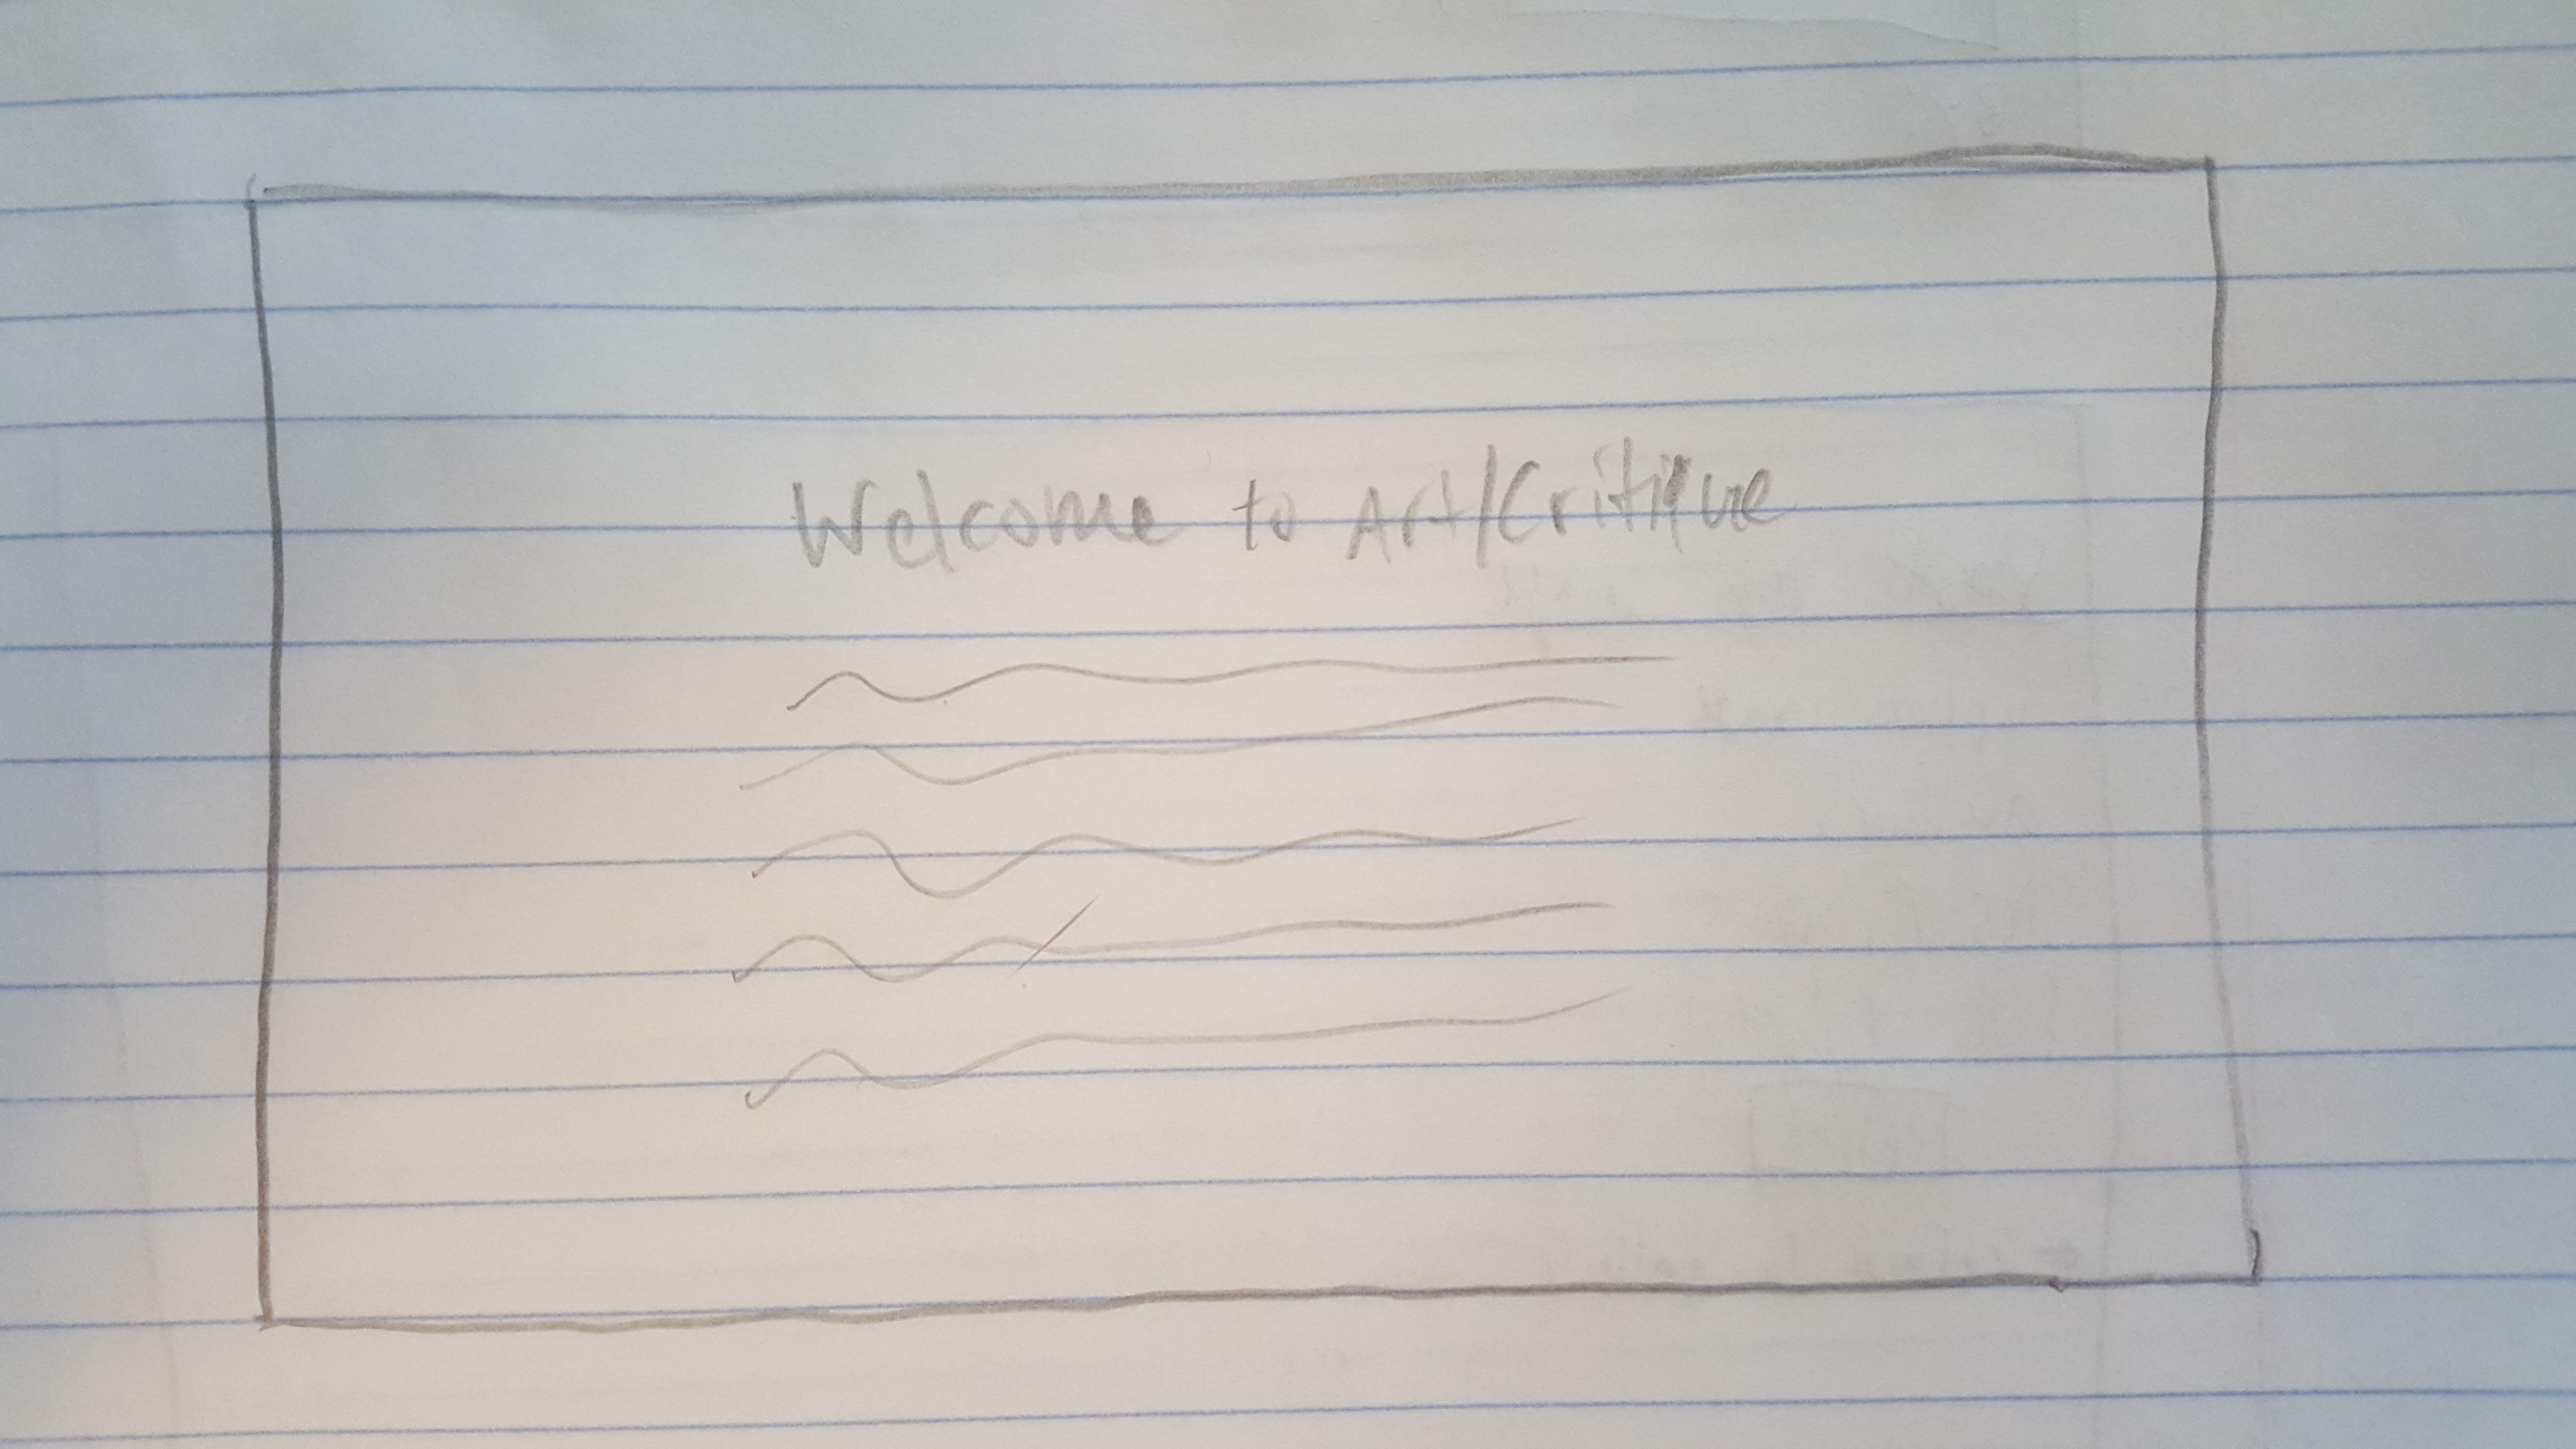 Welcome to Art/Critique